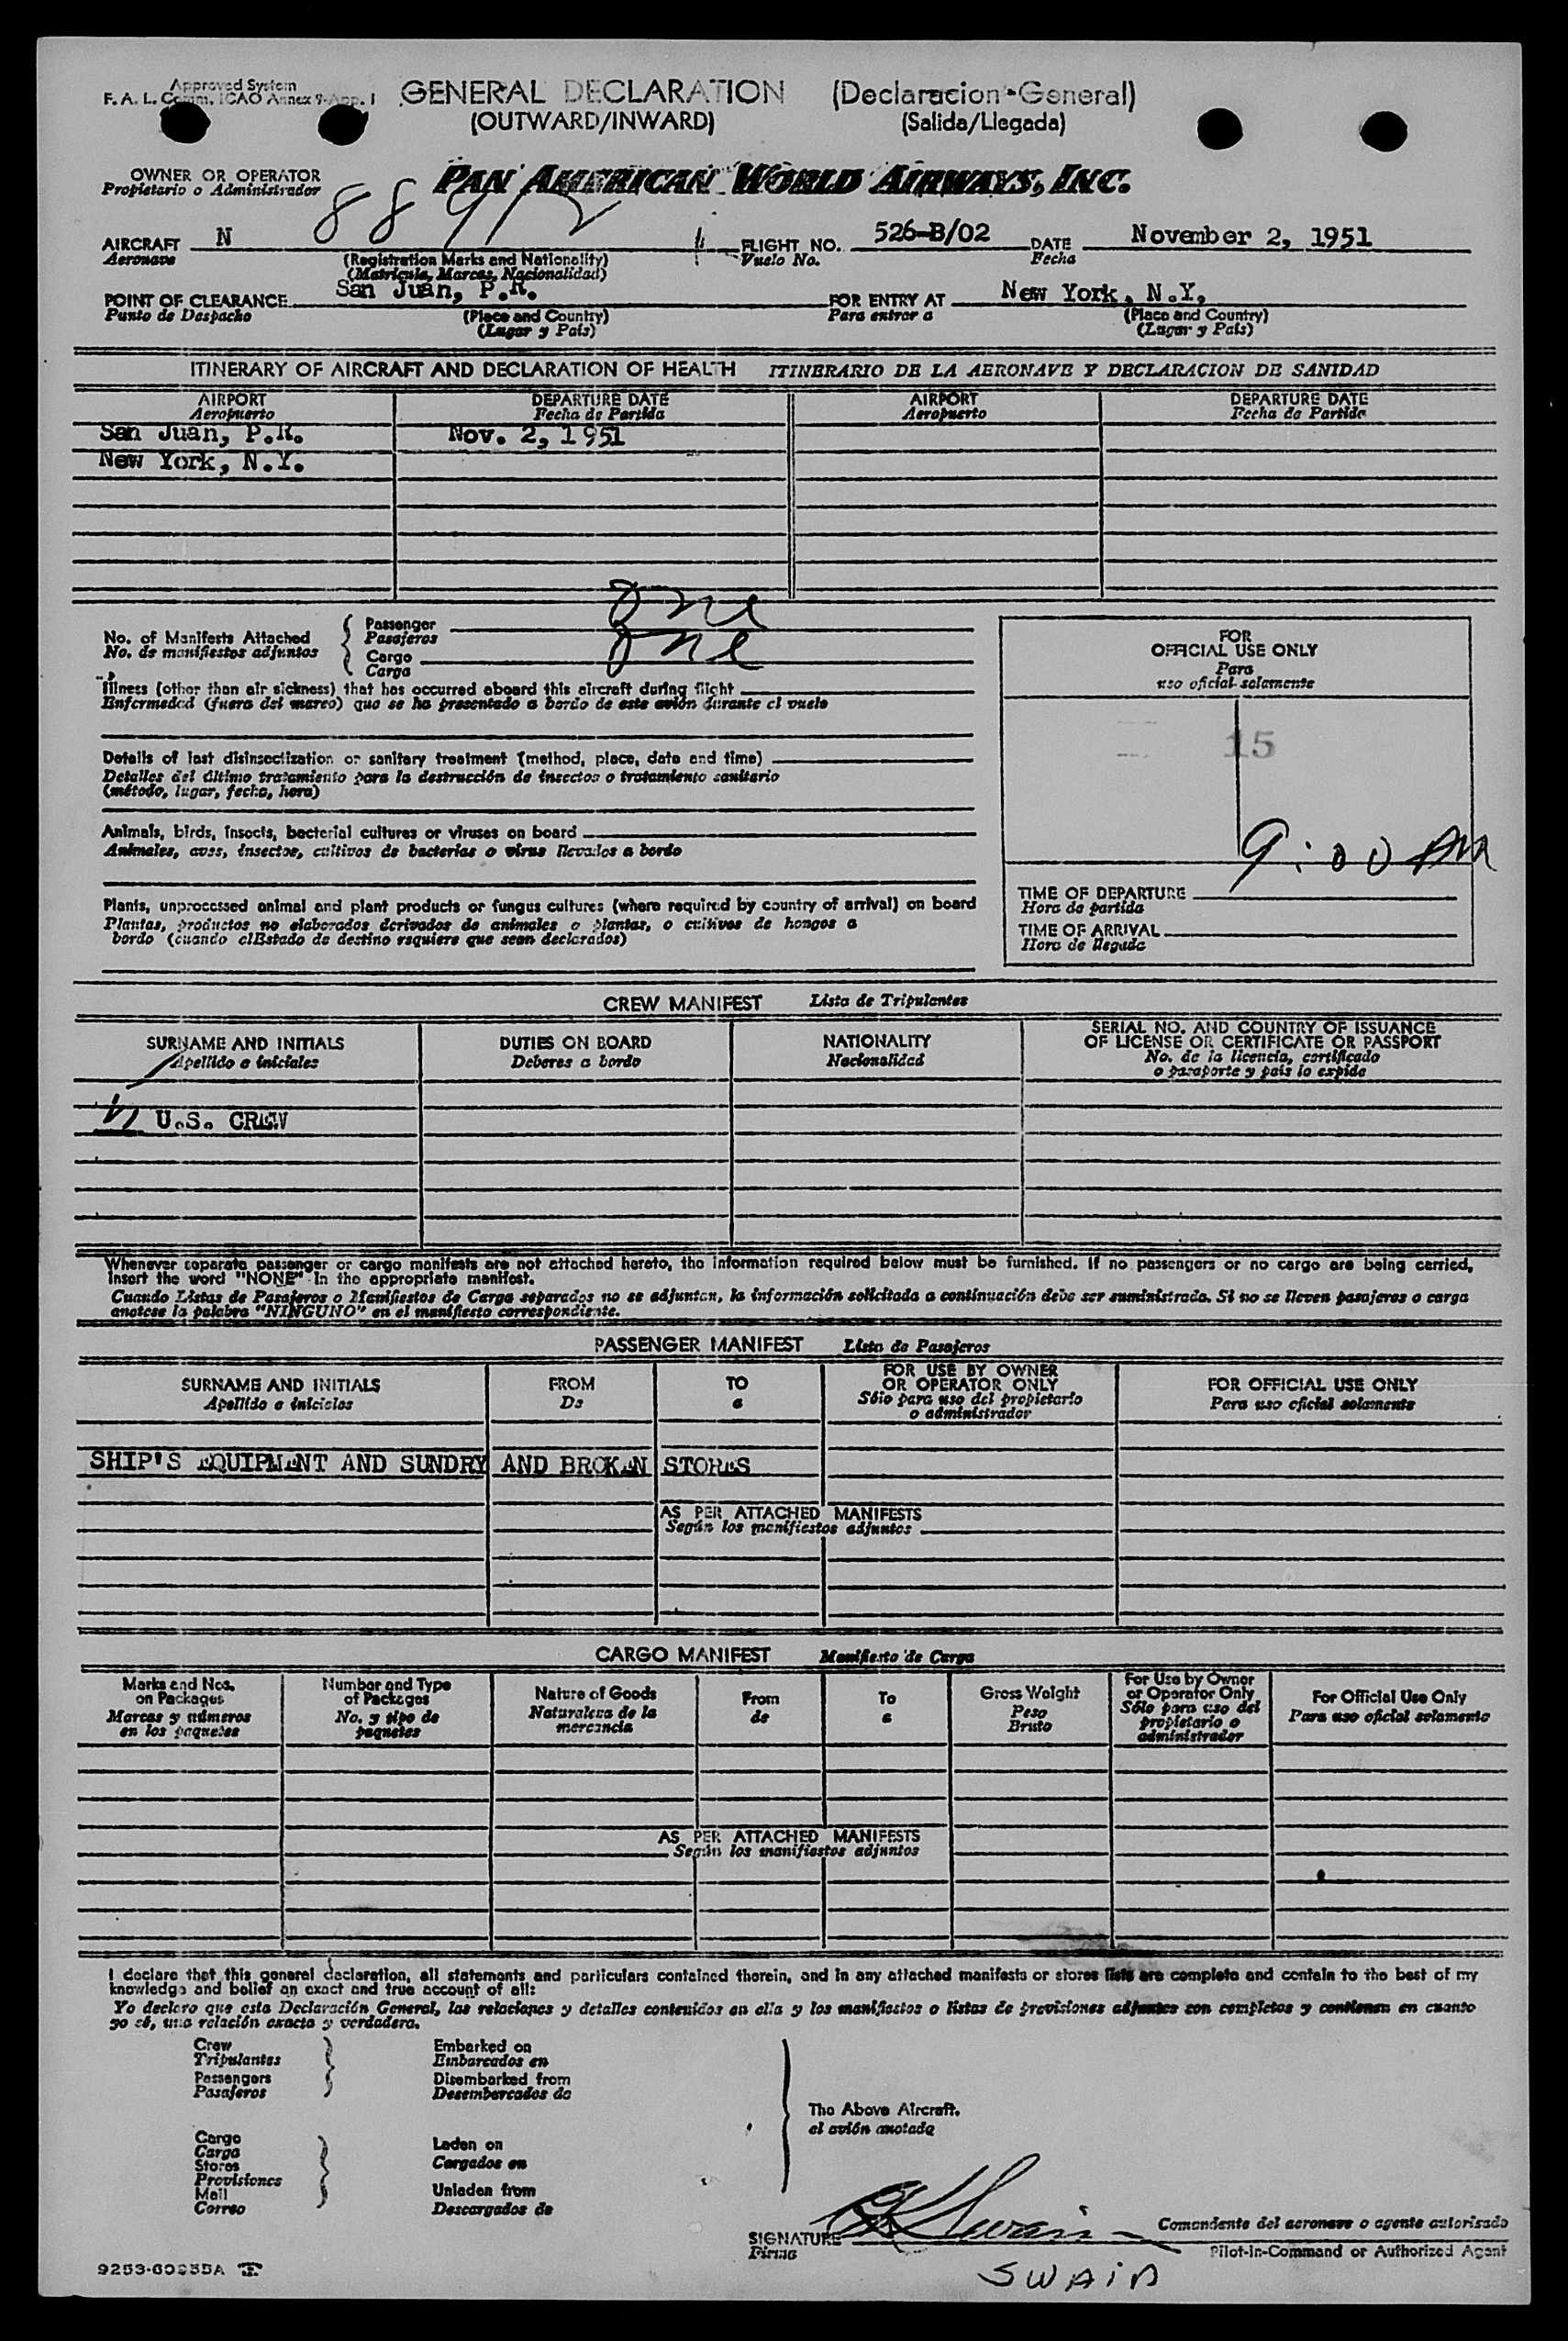 Approved System
F. A. L. Comm. ICAO Annex 9-App. 1
GENERAL DECLARATION (Declaracion General)
(OUTWARD/INWARD) (Salida/Llegada)
OWNER OR OPERATOR
Propietario o Administrador
PAN AMERICAN WORLD AIRWAYS, INC.
AIRCRAFT N 88912 FLIGHT NO. 526-B/02 DATE November 2, 1951
Aeronave (Registration Marks and Nationality) Vuelo No. Fecha
(Matricula, Marcas, Nacionalidad)
POINT OF CLEARANCE San Juan, P.R. FOR ENTRY AT New York, N.Y.
Punto de Despacho (Place and Country) Para entrar a (Place and Country)
(Lugar y Pais) (Lugar y Pais)
ITINERARY OF AIRCRAFT AND DECLARATION OF HEALTH ITINERARIO DE LA AERONAVE Y DECLARACION DE SANIDAD
AIRPORT DEPARTURE DATE AIRPORT DEPARTURE DATE
Aeropuerto Fecha de Partida Aeropuerto Fecha de Partida
San Juan, P.R. Nov. 2, 1951
New York, N.Y.
No. of Manifests Attached
No. de manifiestos adjuntos
Passenger one
Pasajeros
Cargo one
Carga
Illness (other than air sickness) that has occurred aboard this aircraft during flight
Enfermedad (fuera del mareo) que se ha presentado a bordo de este avión durante el vuelo
Details of last disinsectization or sanitary treatment (method, place, date and time)
Detalles del último tratamiento para la destrucción de insectos o tratamiento sanitario
(método, lugar, fecha, hora)
Animals, birds, insects, bacterial cultures or viruses on board
Animales, aves, insectos, cultivos de bacterias o virus llevados a bordo
Plants, unprocessed animal and plant products or fungus cultures (where required by country of arrival) on board
Plantas, productos no elaborados derivados de animales o plantas, o cultivos de hongos a
bordo (cuando el Estado de destino requiere que sean declarados)
FOR
OFFICIAL USE ONLY
Para
uso oficial solamente
15
9:00 AM
TIME OF DEPARTURE
Hora de partida
TIME OF ARRIVAL
Hora de llegada
CREW MANIFEST Lista de Tripulantes
SURNAME AND INITIALS DUTIES ON BOARD NATIONALITY SERIAL NO. AND COUNTRY OF ISSUANCE
OF LICENSE OR CERTIFICATE OR PASSPORT
Apellido e iniciales Deberes a bordo Nacionalidad No. de la licencia, certificado
o pasaporte y pais lo expide
U.S. CREW
Whenever separate passenger or cargo manifests are not attached hereto, the information required below must be furnished. If no passengers or no cargo are being carried,
insert the word "NONE" in the appropriate manifest.
Cuando Listas de Pasajeros o Manifiestos de Carga separados no se adjuntan, la información solicitada a continuación debe ser suministrada. Si no se lleven pasajeros o carga
anotese la palabra "NINGUNO" en el manifiesto correspondiente.
PASSENGER MANIFEST Lista de Pasajeros
SURNAME AND INITIALS FROM TO FOR USE BY OWNER
OR OPERATOR ONLY FOR OFFICIAL USE ONLY
Apellido e iniciales De a Sólo para uso del propietario
o administrador Para uso oficial solamente
SHIP'S EQUIPMENT AND SUNDRY AND BROKEN STORES
AS PER ATTACHED MANIFESTS
Según los manifiestos adjuntos
CARGO MANIFEST Manifiesto de Carga
Marks and Nos.
on Packages
Marcas y números
en los paquetes
Number and Type
of Packages
No. y tipo de
paquetes
Nature of Goods
Naturaleza de la
mercancia
From
de
To
a
Gross Weight
Peso
Bruto
For Use by Owner
or Operator Only
Sólo para uso del
propietario o
administrador
For Official Use Only
Para uso oficial solamente
AS PER ATTACHED MANIFESTS
Según los manifiestos adjuntos
I declare that this general declaration, all statements and particulars contained therein, and in any attached manifests or stores lists are complete and contain to the best of my
knowledge and belief an exact and true account of all:
Yo declaro que esta Declaración General, las relaciones y detalles contenidos en ella y los manifiestos o listas de provisiones adjuntos son completos y contienen en cuanto
yo sé, una relación exacta y verdadera.
Crew
Tripulantes
Passengers
Pasajeros
Embarked on
Embarcados en
Disembarked from
Desembarcados de
The Above Aircraft.
el avión anotado
Cargo
Carga
Stores
Provisiones
Mail
Correo
Laden on
Cargados en
Unladen from
Descargados de
SIGNATURE Swain
Firma
Comandante del aeronave o agente autorisado
Pilot-in-Command or Authorized Agent
SWAIN